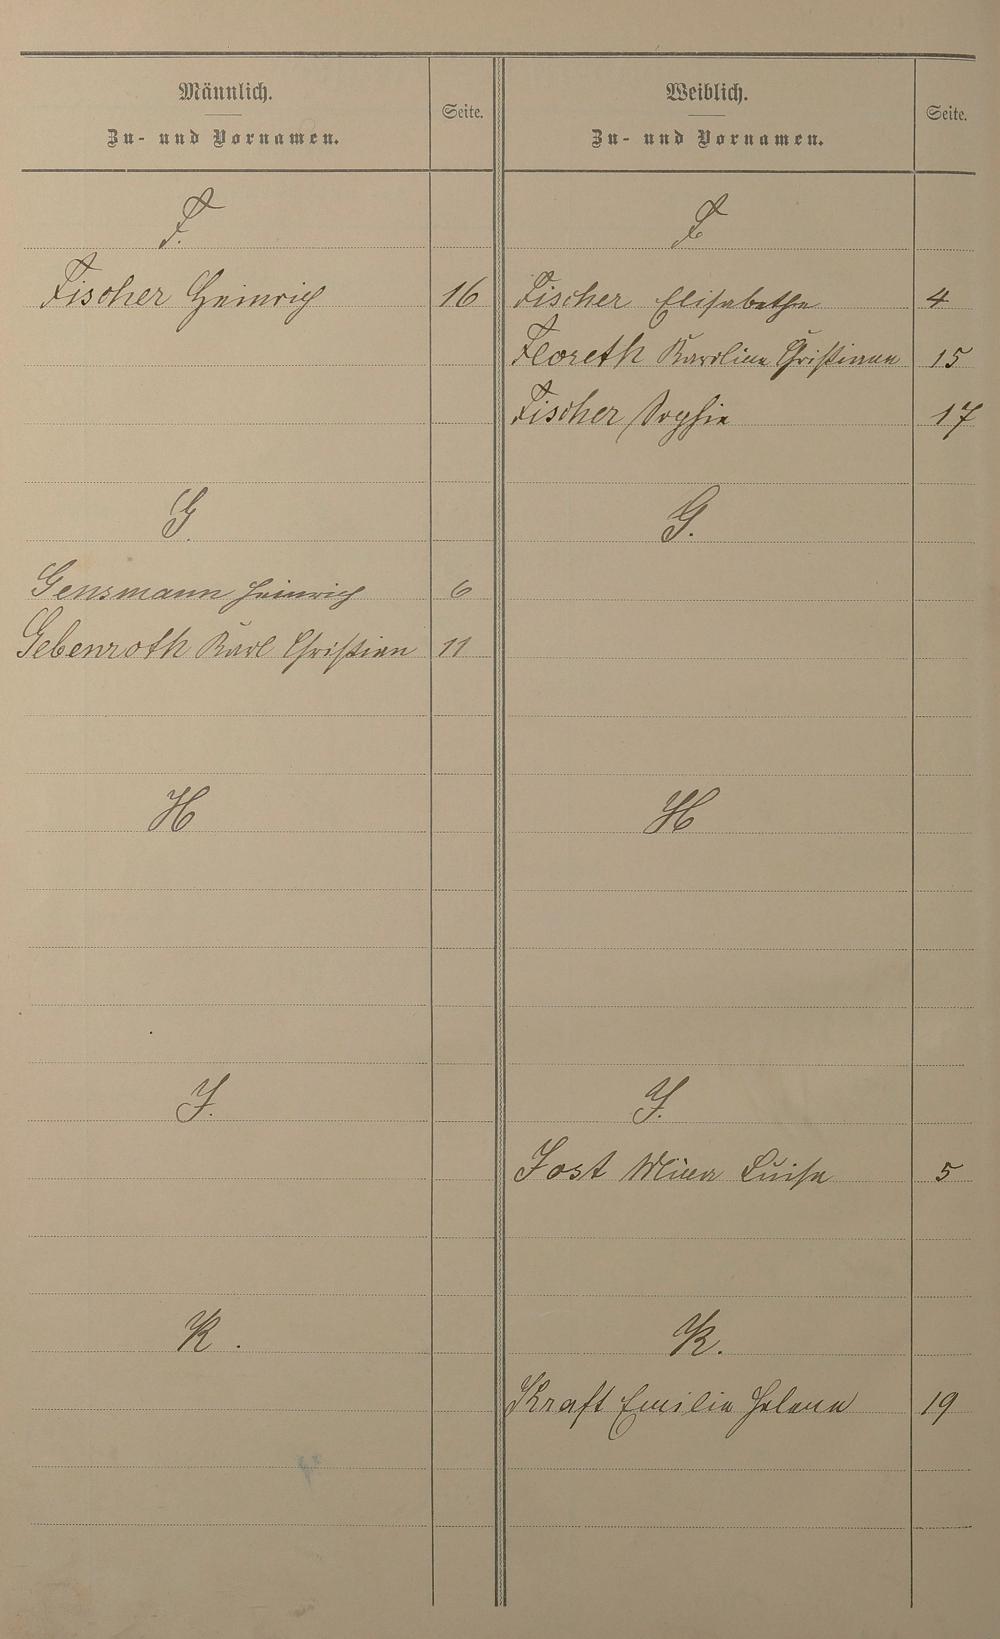 Männlich.
Zu- und Vornamen.
Seite.
Weiblich.
Zu- und Vornamen.
Seite.
F.
F
Fischer Heinrich 16
Fischer Elisabetha 4
Floreth Karoline Christiane 15
Fischer Sophie 17
G.
G.
Gensmann Heinrich 6
Gebenroth Karl Christian 11
H
H
J.
J.
Jost Mina Luise 5
K.
K.
Kraft Emilie Helena 19